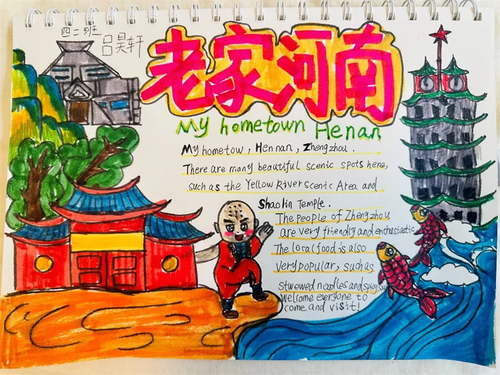 四二班
吕昊轩
老家河南
My hometown Henan
My hometow, Hennan, Zhengzhou.
There are many beautiful scenic spots here,
such as the Yellow River Scenic Area and
Shaolin Temple.
The people of Zhengzhou
are very friendly and enthusiastic
The local food is also
very popular, such as
Stwewed noodles and
Welcome everyone to
come and visit!